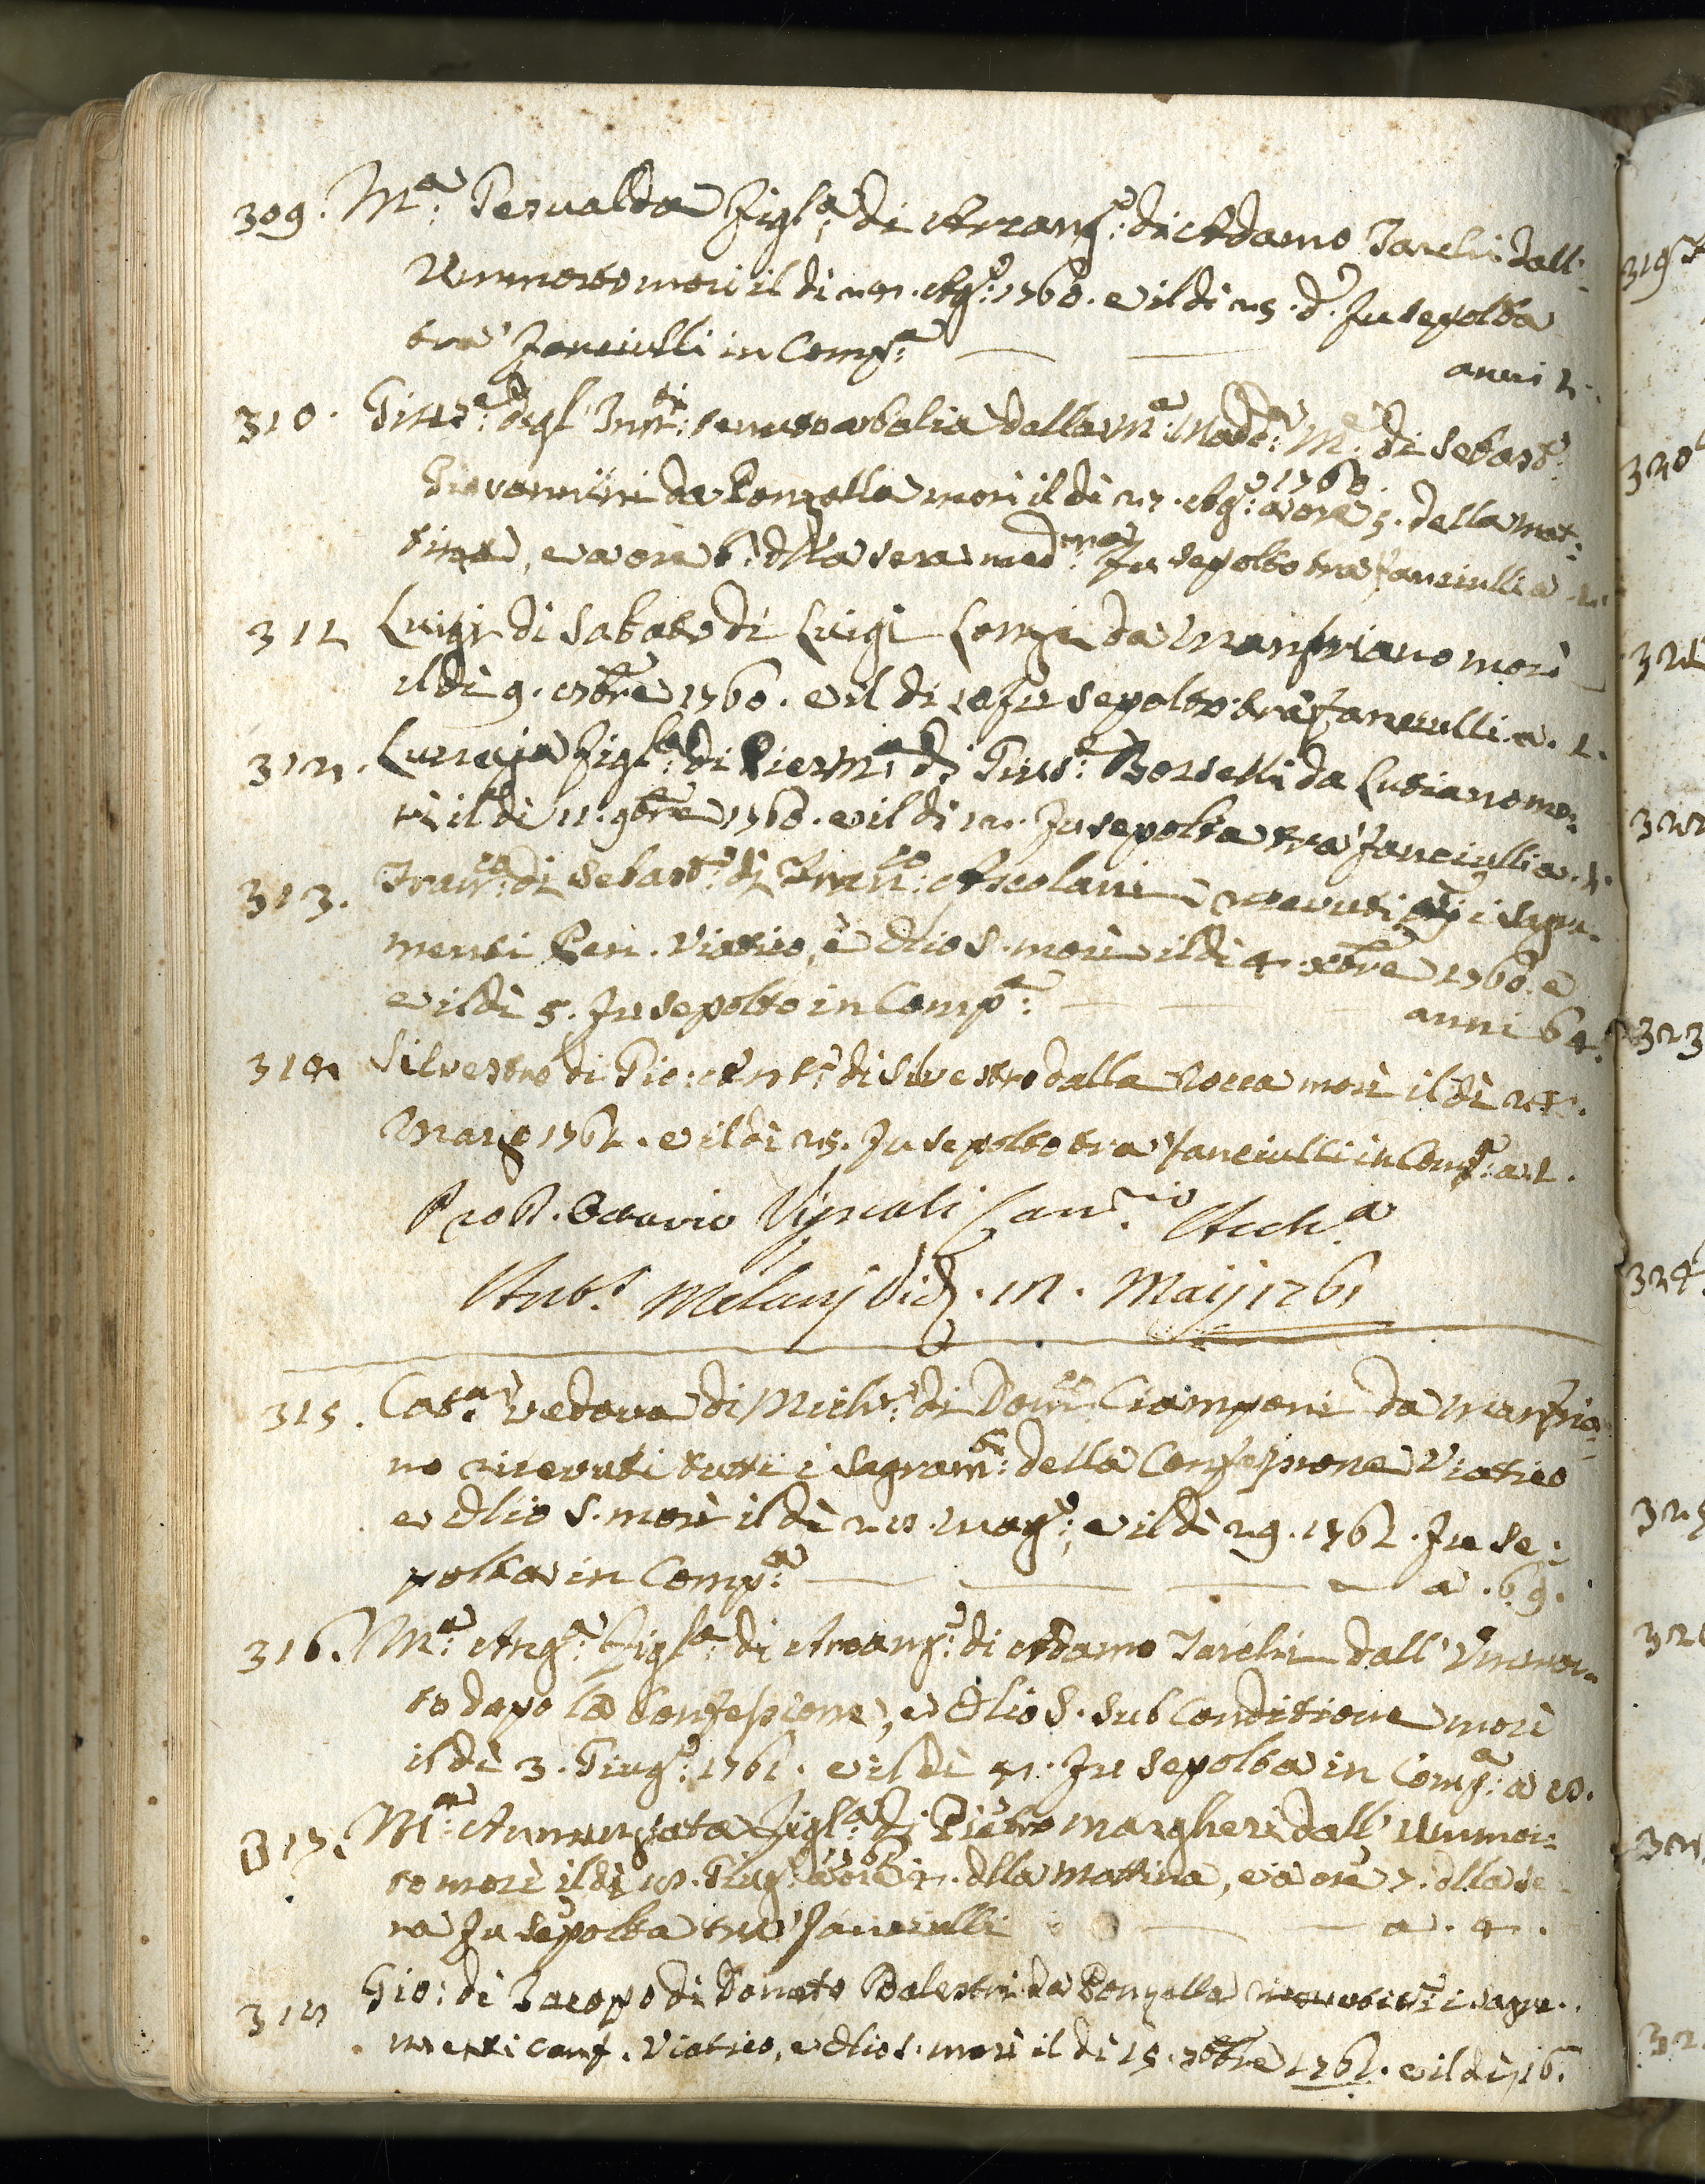 309. M.a Pervalda Figl.a di Arcang.o di Adamo Tarchi dall'
Ummorto morì il dì 24. Ag.o 1760. e il dì 25. d.o fu sepolta
tra' fanciulli in Comp.a anni 1.
310. Gius.e degl' Inn.ti tenuto a balia dalla M.a Madd.a M.e di Sebast.o
Giovannini da Ponzalla morì il dì 27. Ag.o 1760 a ore 5. della mat:
tina, e a ore 6. dlla sera med.ma fu sepolto tra fanciulli a. 1.
311 Luigi di Sabato di Luigi da Manfriano morì
il dì 9. 1760. e il dì 10 fu sepolto tra fanciulli. a. 1.
312. Lucrezia Figl.a di Pier M.a di Gius.e Borselli da Lutiano mo:
rì il dì 11. 9bre 1760. e il dì 12. fu sepolta tra' fanciulli a. 1.
313. Fran.co di Sebast.o di Fran.co Ascolani ricevuti i Sagra:
menti Pen. Viatico, e Olio S. morì il dì 4. xbre 1760. e
e il dì 5. fu sepolto in Comp.a anni 64.
314 Silvestro di Gio: Ant.o di Silvestro dalla Rocca morì il dì
Marzo 1761. e il dì 25. fu sepolto tra' fanciulli in Comp.a a. 1.
Ottavio Vignali Can.rio Arch.a
Ant.s Melanj Vid. 12. Maij 1761
315. Cat.a vedova di Mich.e di Dom.co Ciamponi da Manfria:
no ricevuti tutti i Sagram.ti della Confessione Viatico
e Olio S. morì il dì 28. Mag.o, e il dì 29. 1761. fu se:
polta in Comp.a a. 69.
316. M.a Ang.a Figl.a di Arcang.o di Adamo Tarchi dall' Ummor:
to dopo la Confessione, e Olio S. sub Conditione morì
il dì 3. Giug.o 1761. e il dì 4. fu sepolta in Comp.a a 10.
317. M.a Annunziata Figl.a di Pietro Margheri dall' Ummor:
to morì il dì 18. Giug.o 1761 a ore 4. dlla mattina, e a ore 7. dlla se
ra fu sepolta tra' fanciulli a. 4.
318 Gio: di Jacopo di Donato Balestri da Ponzalla ricevuti i Sagra:
menti Conf. Viatico, e Olio S. morì il dì 15. 7bre 1761. e il dì 16.
319
320
321
322
323
324.
325
326